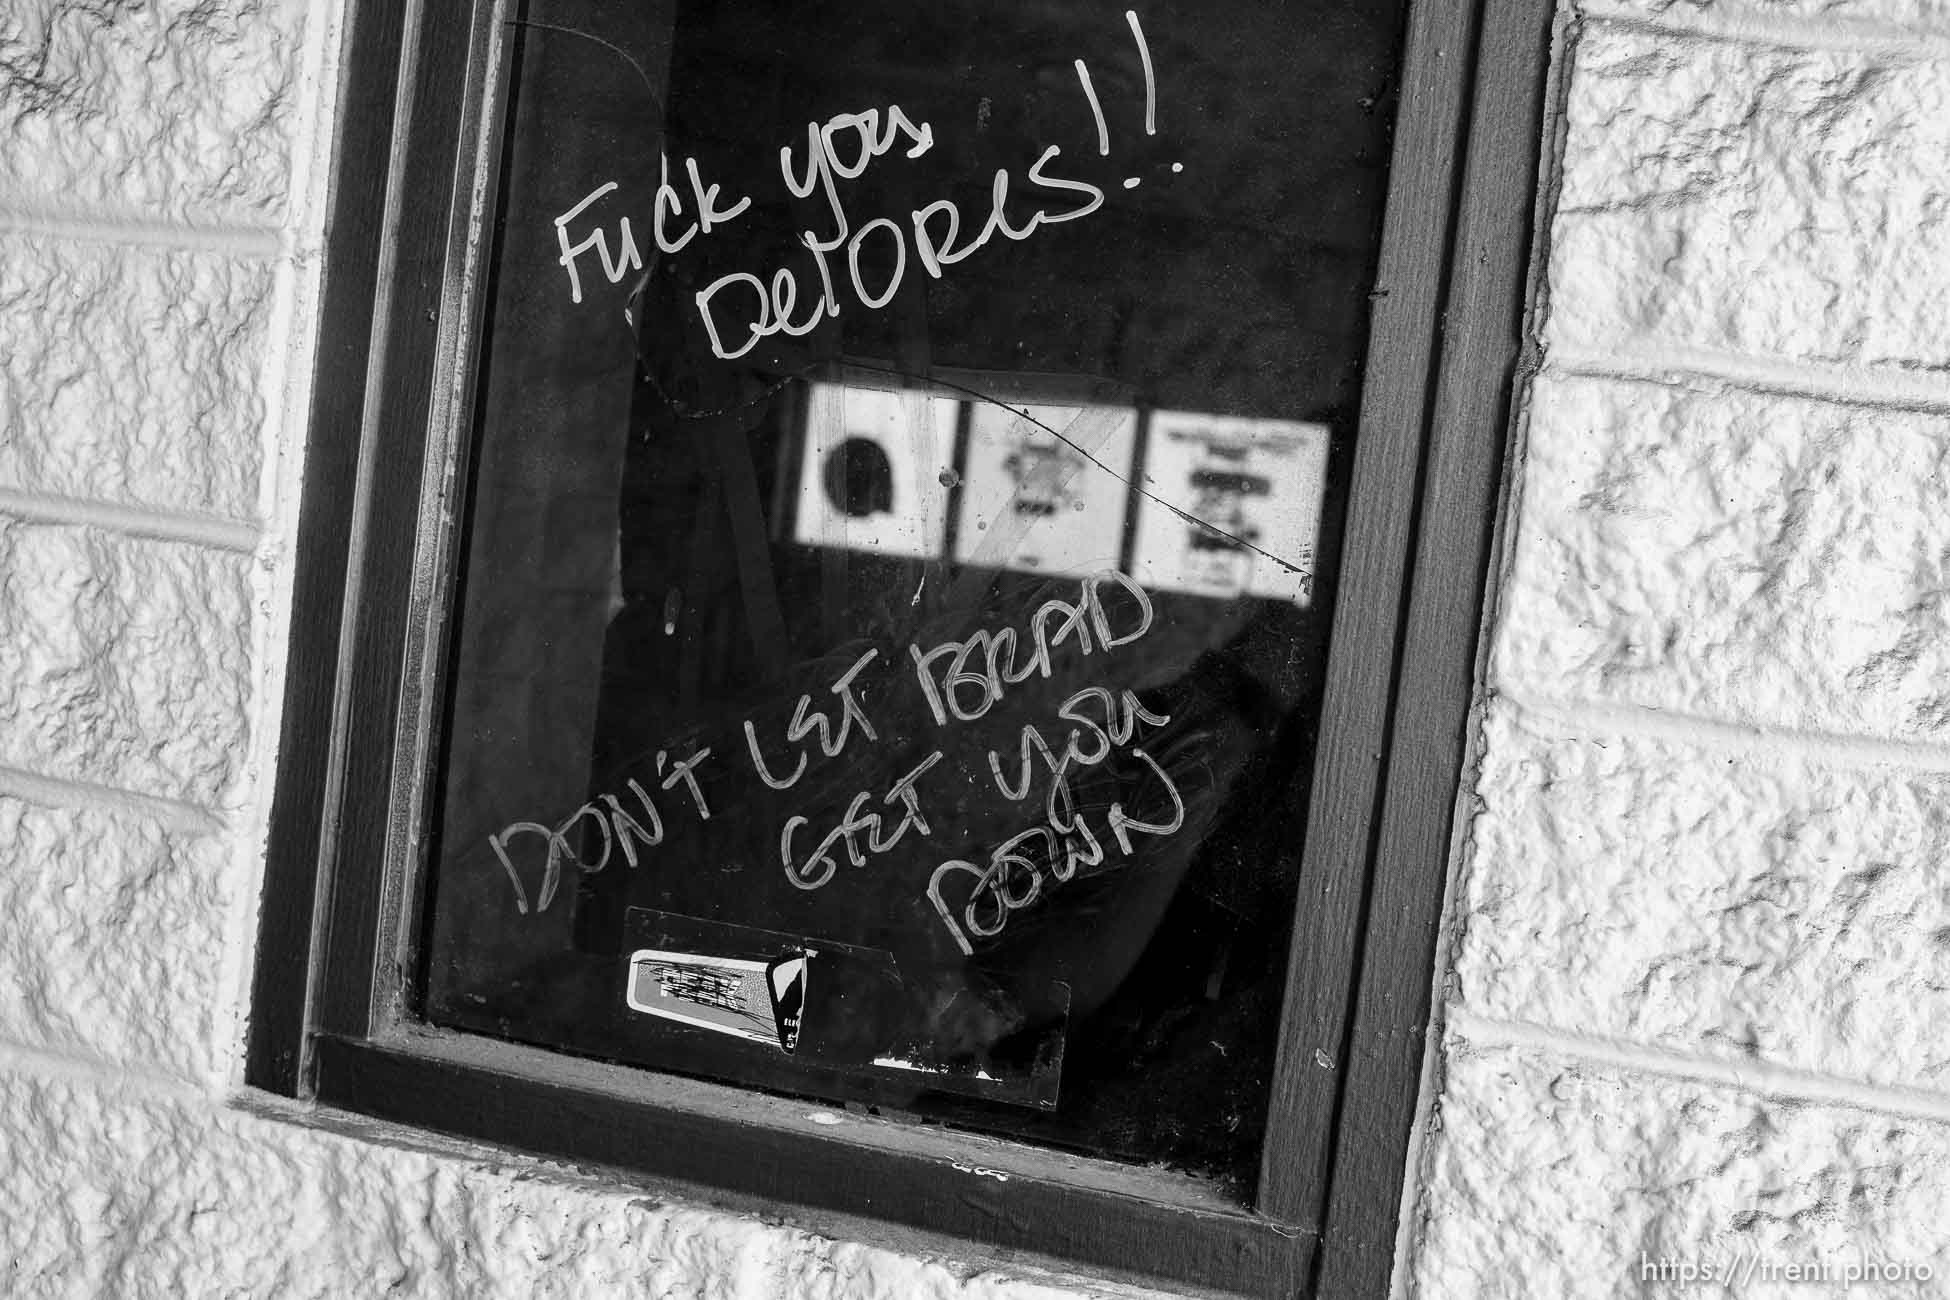 Fuck you
DelORES!!
DON'T LET BRAD
GET YOU
DOWN
https://trent.photo